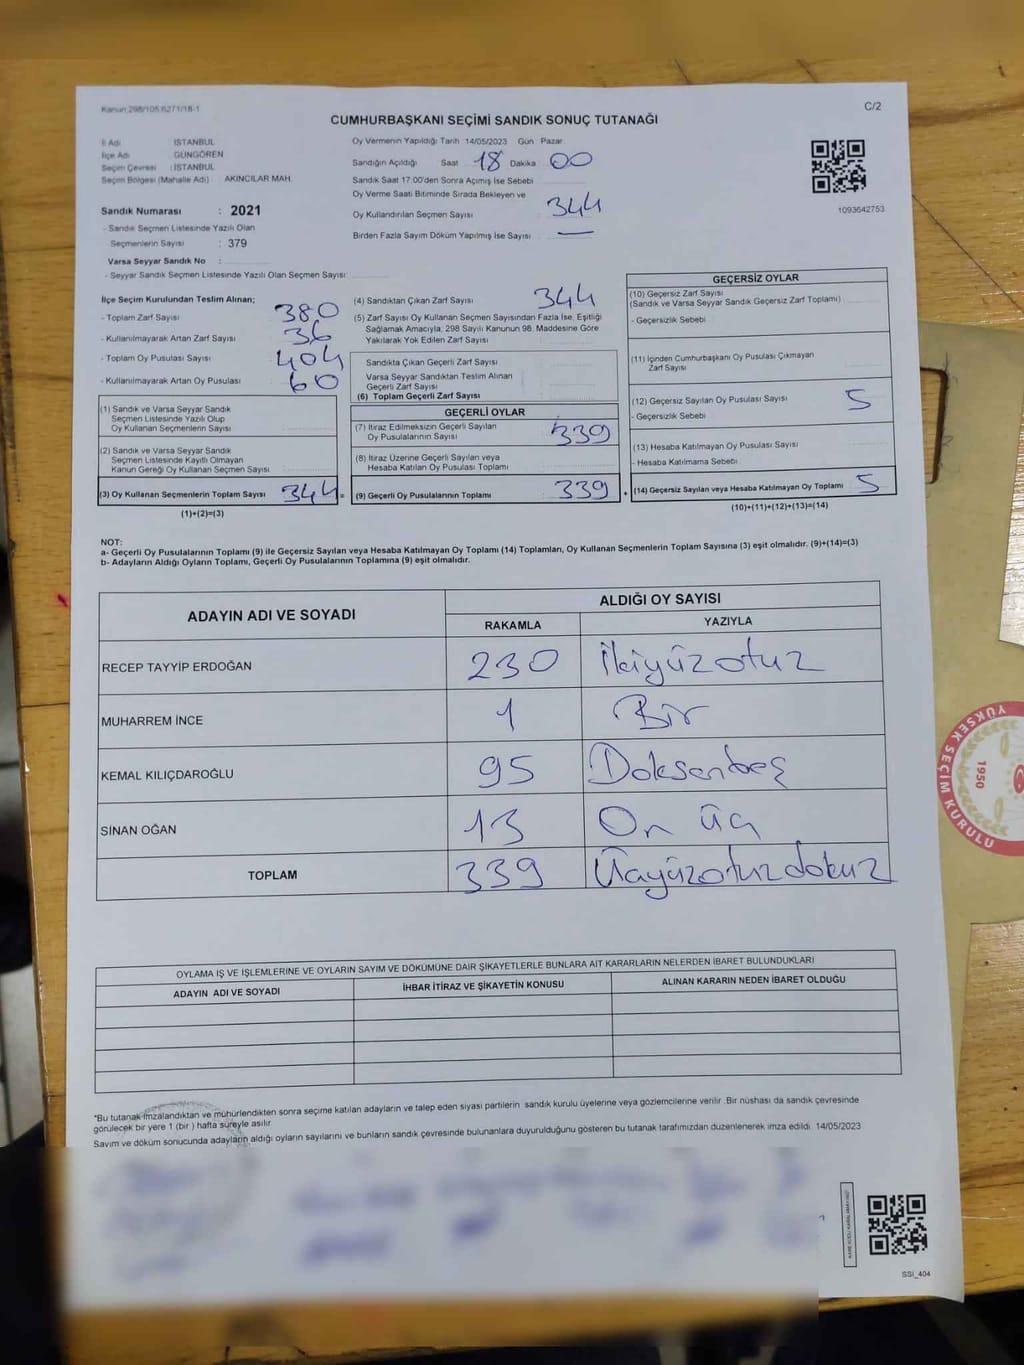 Kanun:298/105 6271/18-1
C/2
CUMHURBAŞKANI SEÇİMİ SANDIK SONUÇ TUTANAĞI
İl Adı : İSTANBUL
İlçe Adı : GÜNGÖREN
Seçim Çevresi : İSTANBUL
Seçim Bölgesi (Mahalle Adı) : AKINCILAR MAH.
Sandık Numarası : 2021
- Sandık Seçmen Listesinde Yazılı Olan
Seçmenlerin Sayısı : 379
Varsa Seyyar Sandık No :
- Seyyar Sandık Seçmen Listesinde Yazılı Olan Seçmen Sayısı:
Oy Vermenin Yapıldığı Tarih 14/05/2023 Gün Pazar
Sandığın Açıldığı Saat 18 Dakika 00
Sandık Saat 17:00'den Sonra Açmış İse Sebebi
Oy Verme Saati Bitiminde Sırada Bekleyen ve
Oy Kullandırılan Seçmen Sayısı 344
Birden Fazla Sayım Döküm Yapılmış İse Sayısı —
1093642753
İlçe Seçim Kurulundan Teslim Alınan;
- Toplam Zarf Sayısı 380
- Kullanılmayarak Artan Zarf Sayısı 36
- Toplam Oy Pusulası Sayısı 404
- Kullanılmayarak Artan Oy Pusulası 60
(1) Sandık ve Varsa Seyyar Sandık
Seçmen Listesinde Yazılı Olup
Oy Kullanan Seçmenlerin Sayısı
(2) Sandık ve Varsa Seyyar Sandık
Seçmen Listesinde Kayıtlı Olmayan
Kanun Gereği Oy Kullanan Seçmen Sayısı
(3) Oy Kullanan Seçmenlerin Toplam Sayısı 344 =
(1)+(2)=(3)
(4) Sandıktan Çıkan Zarf Sayısı 344
(5) Zarf Sayısı Oy Kullanan Seçmen Sayısından Fazla İse, Eşitliği
Sağlamak Amacıyla, 298 Sayılı Kanunun 98. Maddesine Göre
Yakılarak Yok Edilen Zarf Sayısı
Sandıkta Çıkan Geçerli Zarf Sayısı
Varsa Seyyar Sandıktan Teslim Alınan
Geçerli Zarf Sayısı
(6) Toplam Geçerli Zarf Sayısı
GEÇERLİ OYLAR
(7) İtiraz Edilmeksizin Geçerli Sayılan
Oy Pusulalarının Sayısı 339
(8) İtiraz Üzerine Geçerli Sayılan veya
Hesaba Katılan Oy Pusulası Toplamı
(9) Geçerli Oy Pusulalarının Toplamı 339 +
GEÇERSİZ OYLAR
(10) Geçersiz Zarf Sayısı
(Sandık ve Varsa Seyyar Sandık Geçersiz Zarf Toplamı)
- Geçersizlik Sebebi
(11) İçinden Cumhurbaşkanı Oy Pusulası Çıkmayan
Zarf Sayısı
(12) Geçersiz Sayılan Oy Pusulası Sayısı 5
- Geçersizlik Sebebi
(13) Hesaba Katılmayan Oy Pusulası Sayısı
- Hesaba Katılmama Sebebi
(14) Geçersiz Sayılan veya Hesaba Katılmayan Oy Toplamı 5
(10)+(11)+(12)+(13)=(14)
NOT:
a- Geçerli Oy Pusulalarının Toplamı (9) ile Geçersiz Sayılan veya Hesaba Katılmayan Oy Toplamı (14) Toplamları, Oy Kullanan Seçmenlerin Toplam Sayısına (3) eşit olmalıdır. (9)+(14)=(3)
b- Adayların Aldığı Oyların Toplamı, Geçerli Oy Pusulalarının Toplamına (9) eşit olmalıdır.
ADAYIN ADI VE SOYADI
ALDIĞI OY SAYISI
RAKAMLA YAZIYLA
RECEP TAYYİP ERDOĞAN 230 İkiyüzotuz
MUHARREM İNCE 1 Bir
KEMAL KILIÇDAROĞLU 95 Doksanbeş
SİNAN OĞAN 13 On üç
TOPLAM 339 Üçyüzotuzdokuz
OYLAMA İŞ VE İŞLEMLERİNE VE OYLARIN SAYIM VE DÖKÜMÜNE DAİR ŞİKAYETLERLE BUNLARA AİT KARARLARIN NELERDEN İBARET BULUNDUKLARI
ADAYIN ADI VE SOYADI İHBAR İTİRAZ VE ŞİKAYETİN KONUSU ALINAN KARARIN NEDEN İBARET OLDUĞU
*Bu tutanak imzalandıktan ve mühürlendikten sonra seçime katılan adayların ve talep eden siyasi partilerin sandık kurulu üyelerine veya gözlemcilerine verilir .Bir nüshası da sandık çevresinde
görülecek bir yere 1 (bir ) hafta süreyle asılır.
Sayım ve döküm sonucunda adayların aldığı oyların sayılarını ve bunların sandık çevresinde bulunanlara duyurulduğunu gösteren bu tutanak tarafımızdan düzenlenerek imza edildi. 14/05/2023
SSİ_404
YÜKSEK SEÇİM KURULU
1950